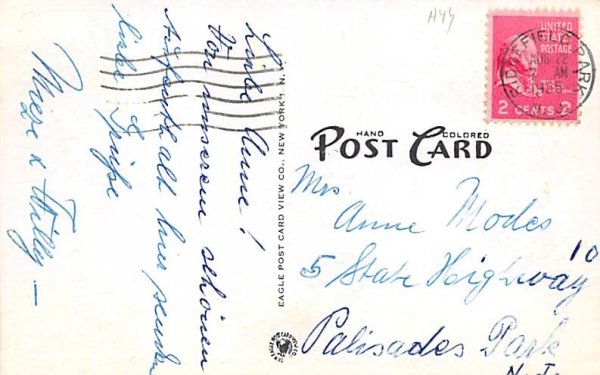 Liebe Anne!
Von unserem schönen
Aufenthalt hier senden
liebe Grüße
Mieze & Willy —
EAGLE POST CARD VIEW CO., NEW YORK 1, N.Y.
A44
UNITED STATES
POSTAGE
2 CENTS 2
RIDGEFIELD PARK
AUG 22
AM
HAND COLORED
POST CARD
Mrs.
Anne Modes
10
5 State Highway
Palisades Park
N.J.